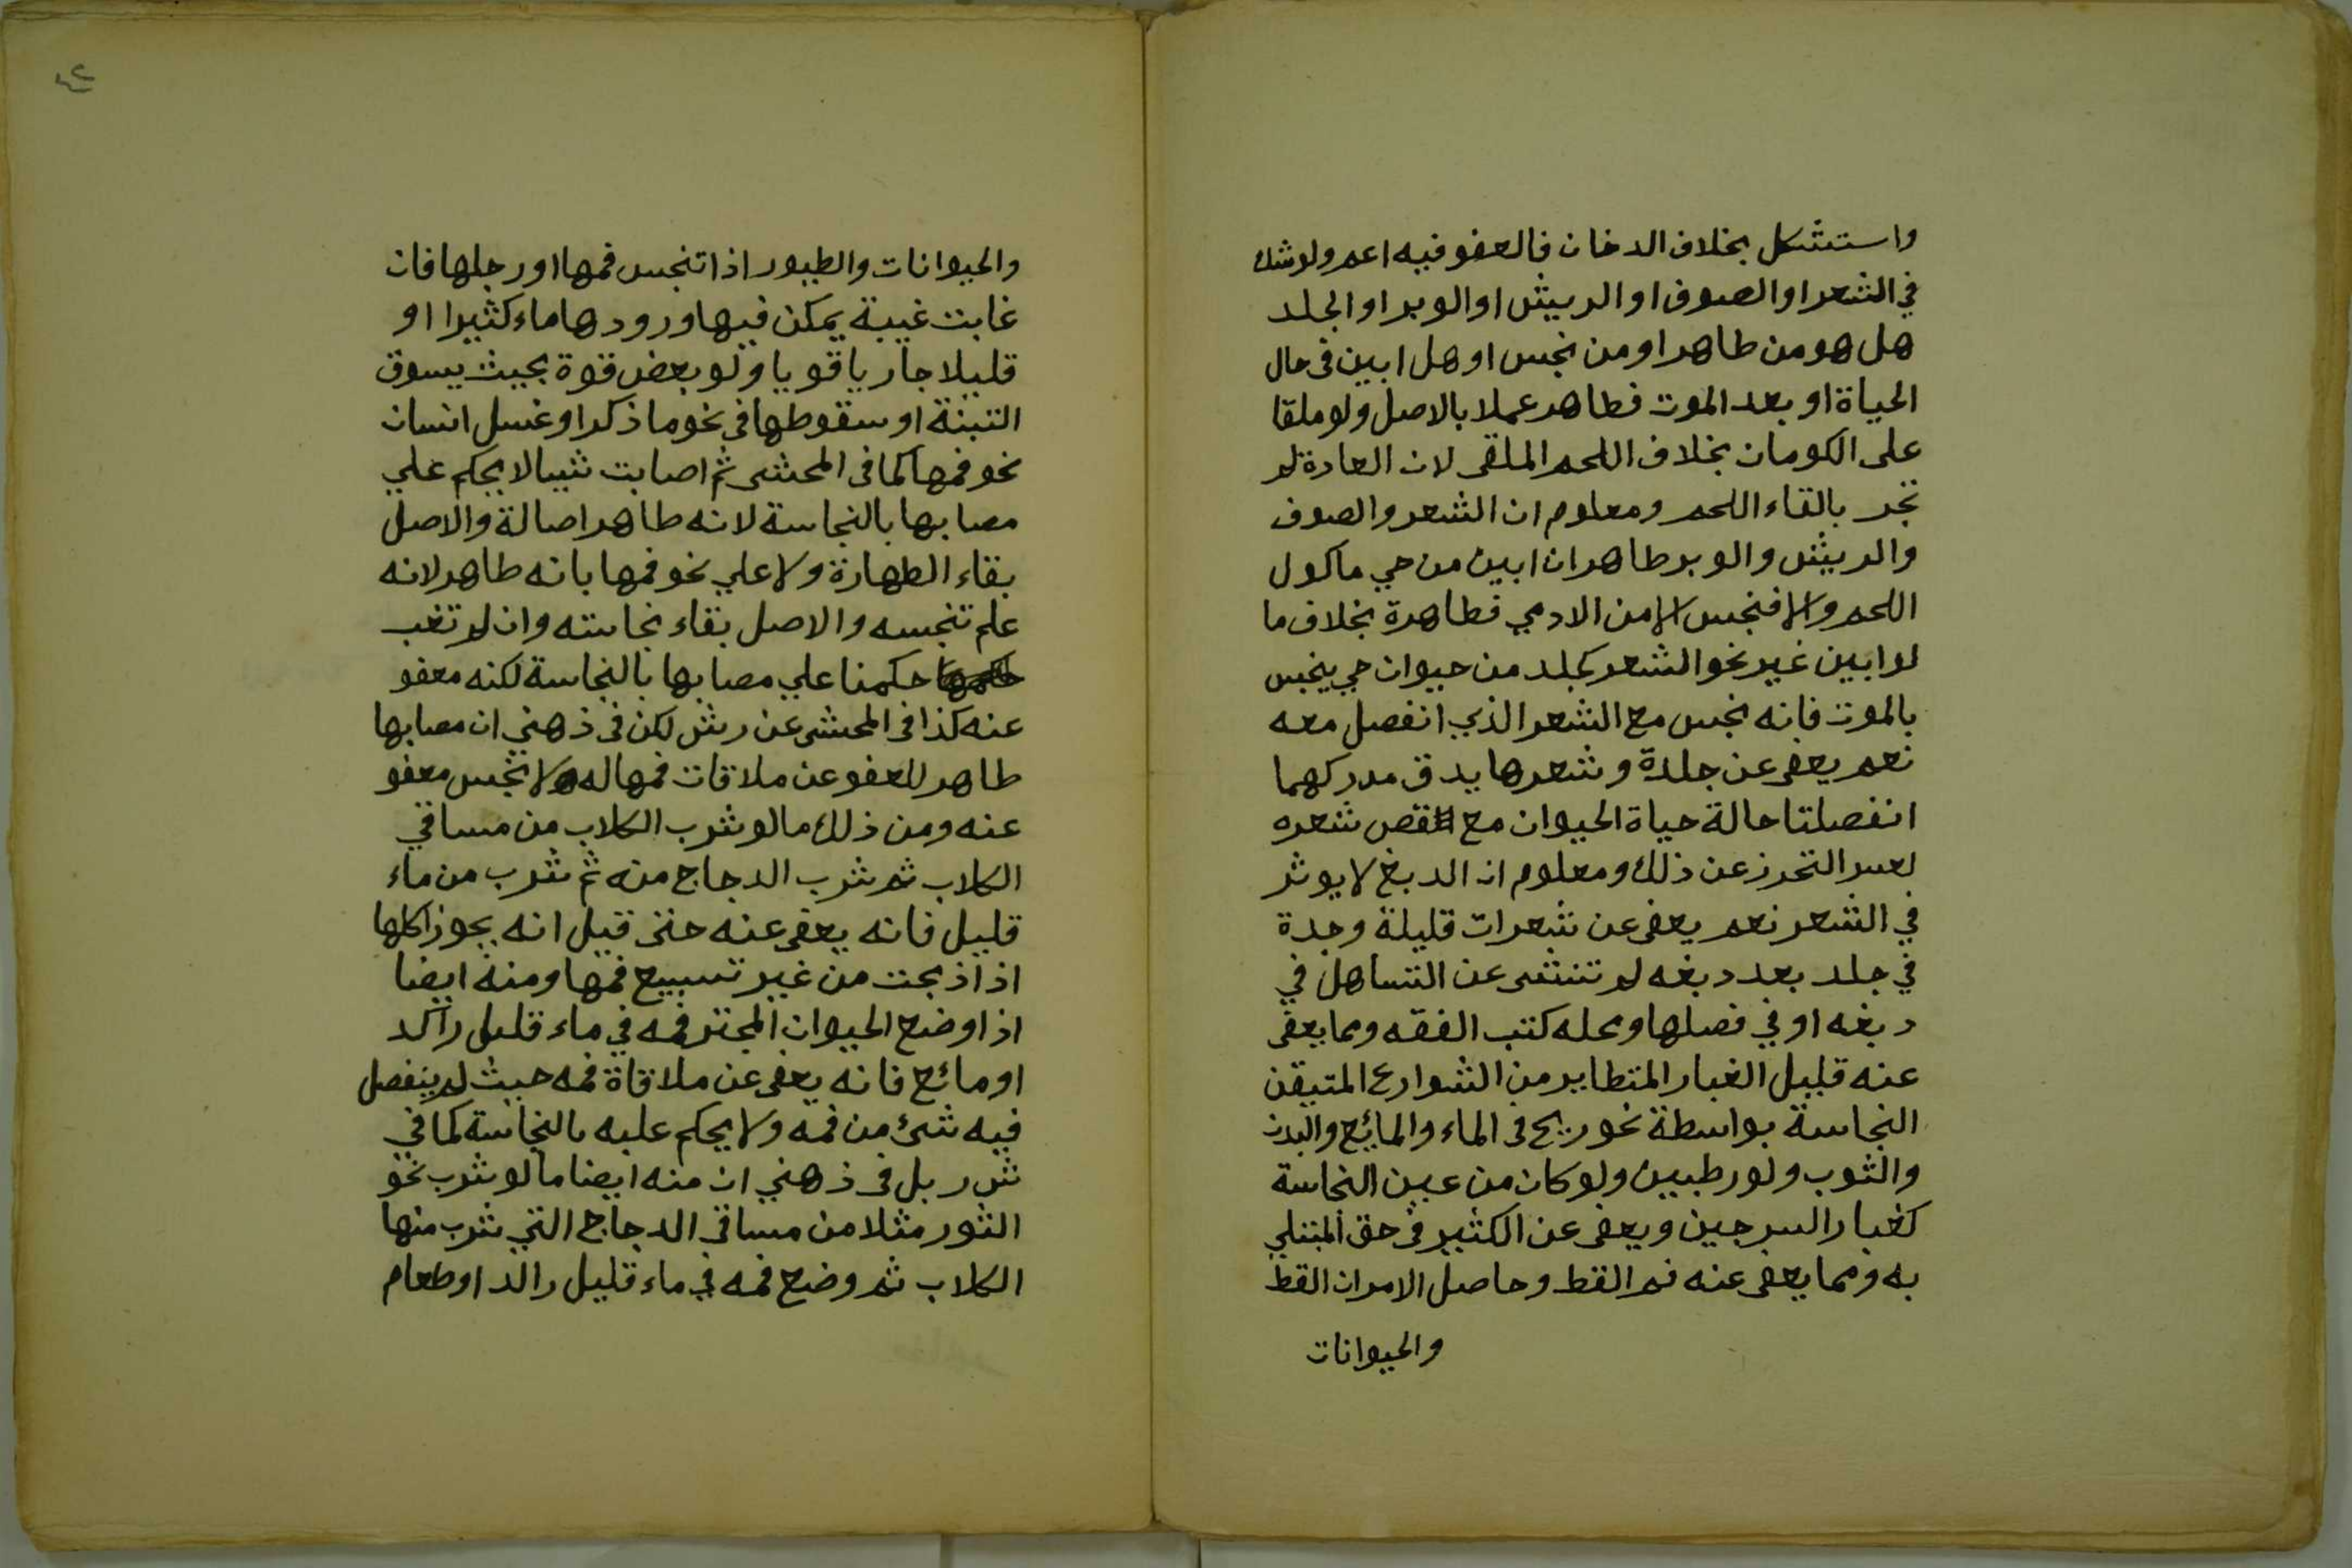 واستشكل بخلاف الدخان فالعفو فيه اعم ولو شك
في الشعر او الصوف او الريش او الوبر او الجلد
هل هو من طاهر او من نجس او هل ابين فى حال
الحياة او بعد الموت فطاهر عملا بالاصل ولو ملقا
على الكومان بخلاف اللحم الملقى لان العادة لم
تجر بالقاء اللحم ومعلوم ان الشعر والصوف
والريش والوبر طاهر ان ابين من حي ماكول
اللحم والا فنجس الا من الادمي فطاهرة بخلاف ما
لو ابين غير نحو الشعر كجلد من حيوان حي ينجس
بالموت فانه نجس مع الشعر الذي انفصل معه
نعم يعفى عن جلدة وشعرها يدق مدركهما
انفصلتا حالة حياة الحيوان مع قص شعره
لعسر التحرز عن ذلك ومعلوم ان الدبغ لا يوثر
في الشعر نعم يعفى عن شعرات قليلة وجدة
في جلد بعد دبغه لم تنشى عن التساهل في
دبغه او في فصلها ومحله كتب الفقه ومما يعفى
عنه قليل الغبار المتطاير من الشوارع المتيقن
النجاسة بواسطة نحو ريح فى الماء والمائع والبدن
والثوب ولو رطبين ولو كان من عين النجاسة
كغبار السرجين ويعفى عن الكثير فى حق المبتلي
به ومما يعفى عنه فم القط وحاصل الامر ان القط
والحيوانات
٤٢
والحيوانات والطيور اذا تنجس فمها او رجلها فان
غابت غيبة يمكن فيها ورودها ماء كثيرا او
قليلا جاريا قويا ولو بعض قوة بحيث يسوق
التبنة او سقوطها فى نحو ما ذكر او غسل انسان
نحو فمها كما فى المحشى ثم اصابت شيا لا يحكم علي
مصابها بالنجاسة لانه طاهر اصالة والاصل
بقاء الطهارة ولا علي نحو فمها بانه طاهر لانه
علم تنجسه والاصل بقاء نجاسته وان لم تغب
حكمنا علي مصابها بالنجاسة لكنه معفو
عنه كذا فى المحشى عن رش لكن فى ذهني ان مصابها
طاهر للعفو عن ملاقات فمها له ولا نجس معفو
عنه ومن ذلك ما لو شرب الكلاب من مساقي
الكلاب ثم شرب الدجاج منه ثم شرب من ماء
قليل فانه يعفى عنه حتى قيل انه يجوز اكلها
اذا ذبحت من غير تسبيع فمها ومنه ايضا
اذا وضع الحيوان المجتر فمه في ماء قليل راكد
او مائع فانه يعفى عن ملاقاة فمه حيث لم ينفصل
فيه شئ من فمه ولا يحكم عليه بالنجاسة كما في
ش ر بل فى ذهني ان منه ايضا ما لو شرب نحو
الثور مثلا من مساقي الدجاج التي شرب منها
الكلاب ثم وضع فمه في ماء قليل راكد او طعام